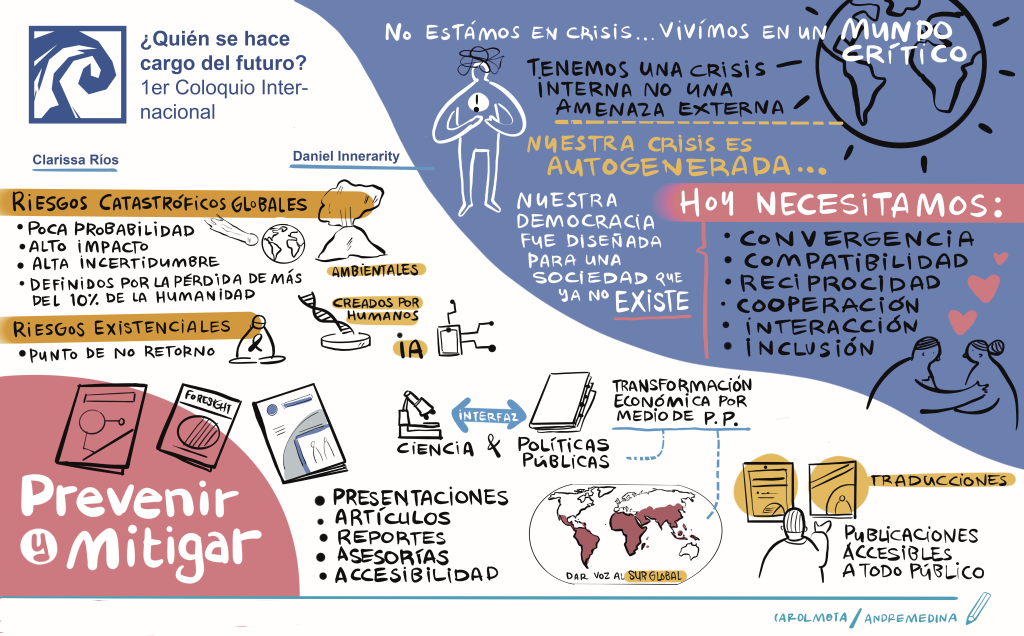 ¿Quién se hace
cargo del futuro?
1er Coloquio Inter-
nacional
Clarissa Ríos
Daniel Innerarity
NO ESTÁMOS EN CRISIS... VIVÍMOS EN UN MUNDO
CRÍTICO
TENEMOS UNA CRISIS
INTERNA NO UNA
AMENAZA EXTERNA
NUESTRA CRISIS ES
AUTOGENERADA...
NUESTRA
DEMOCRACIA
FUE DISEÑADA
PARA UNA
SOCIEDAD QUE
YA NO EXISTE
HOY NECESITAMOS:
• CONVERGENCIA
• COMPATIBILIDAD
• RECIPROCIDAD
• COOPERACIÓN
• INTERACCIÓN
• INCLUSIÓN
RIESGOS CATASTRÓFICOS GLOBALES
• POCA PROBABILIDAD
• ALTO IMPACTO
• ALTA INCERTIDUMBRE
• DEFINIDOS POR LA PÉRDIDA DE MÁS
DEL 10% DE LA HUMANIDAD
AMBIENTALES
CREADOS POR
HUMANOS
iA
RIESGOS EXISTENCIALES
• PUNTO DE NO RETORNO
FORESIGHT
Prevenir
y Mitigar
INTERFAZ
CIENCIA & POLÍTICAS
PÚBLICAS
TRANSFORMACIÓN
ECONÓMICA POR
MEDIO DE P.P.
• PRESENTACIONES
• ARTÍCULOS
• REPORTES
• ASESORÍAS
• ACCESIBILIDAD
DAR VOZ AL SUR GLOBAL
TRADUCCIONES
PUBLICACIONES
ACCESIBLES
A TODO PÚBLICO
CAROLMOTA / ANDREMEDINA